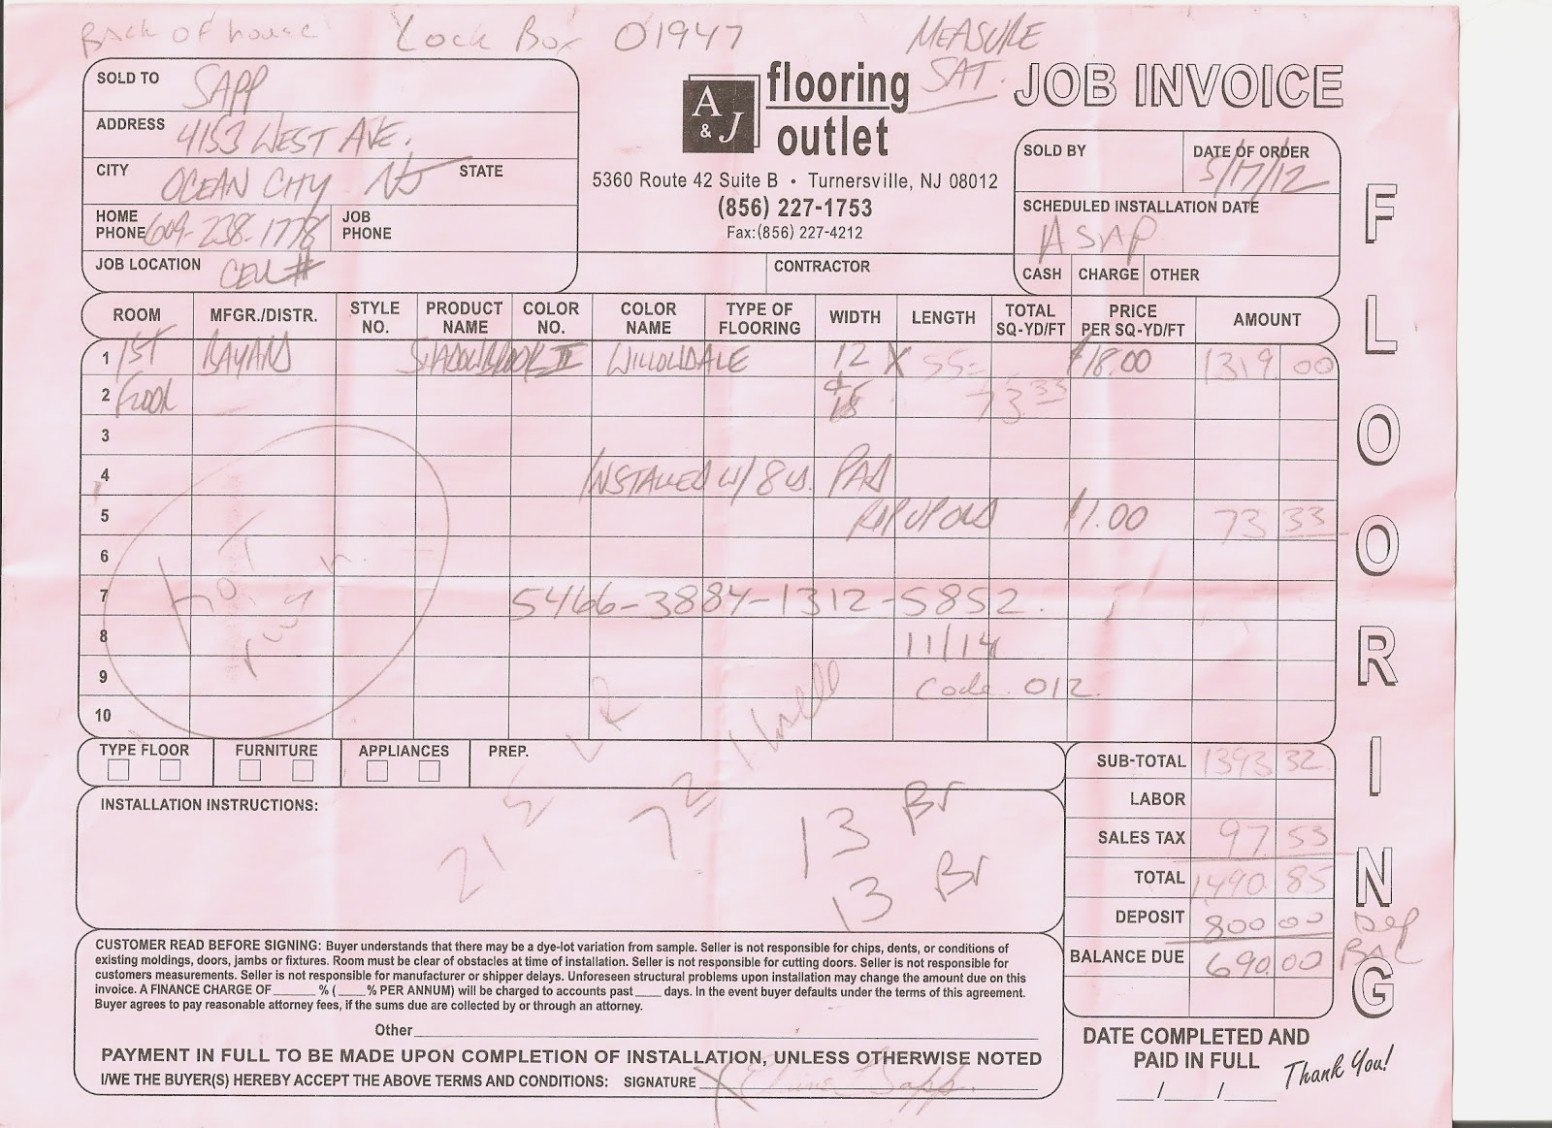 Back of house Lock Box MEASURE SAT.
A & J flooring outlet
JOB INVOICE
5360 Route 42 Suite B • Turnersville, NJ 08012
(856) 227-1753
Fax:(856) 227-4212
SOLD TO SAPP
ADDRESS 4153 WEST AVE.
CITY OCEAN CITY NJ STATE
HOME PHONE 609-238-1778 JOB PHONE
JOB LOCATION CELL #
CONTRACTOR
SOLD BY DATE OF ORDER 5/17/12
SCHEDULED INSTALLATION DATE
ASAP
CASH CHARGE OTHER
ROOM MFGR./DISTR. STYLE NO. PRODUCT NAME COLOR NO. COLOR NAME TYPE OF FLOORING WIDTH LENGTH TOTAL SQ-YD/FT PRICE PER SQ-YD/FT AMOUNT
1 1ST SHADOWBROOK II WILLOWDALE 12 X 55 $18.00 1319 00
2 FLOOR 73 33
3
4 INSTALLED W/ 8 PAD
5 RIP UP OLD $1.00 73 33
6
7
8
9
10
TYPE FLOOR FURNITURE APPLIANCES PREP.
INSTALLATION INSTRUCTIONS:
13 Br
13 Br
SUB-TOTAL 1393 32
LABOR
SALES TAX 97 53
TOTAL 1490 85
DEPOSIT 800 00 Dep
BALANCE DUE 690 00 BAL
CUSTOMER READ BEFORE SIGNING: Buyer understands that there may be a dye-lot variation from sample. Seller is not responsible for chips, dents, or conditions of
existing moldings, doors, jambs or fixtures. Room must be clear of obstacles at time of installation. Seller is not responsible for cutting doors. Seller is not responsible for
customers measurements. Seller is not responsible for manufacturer or shipper delays. Unforeseen structural problems upon installation may change the amount due on this
invoice. A FINANCE CHARGE OF______ % (____% PER ANNUM) will be charged to accounts past____ days. In the event buyer defaults under the terms of this agreement.
Buyer agrees to pay reasonable attorney fees, if the sums due are collected by or through an attorney.
Other
PAYMENT IN FULL TO BE MADE UPON COMPLETION OF INSTALLATION, UNLESS OTHERWISE NOTED
I/WE THE BUYER(S) HEREBY ACCEPT THE ABOVE TERMS AND CONDITIONS: SIGNATURE X Sapp
DATE COMPLETED AND
PAID IN FULL
Thank You!
___/___/___
FLOORING